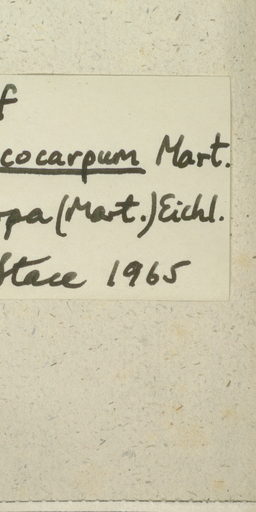 f
cocarpum Mart.
rpa (Mart.) Eichl.
Stace 1965